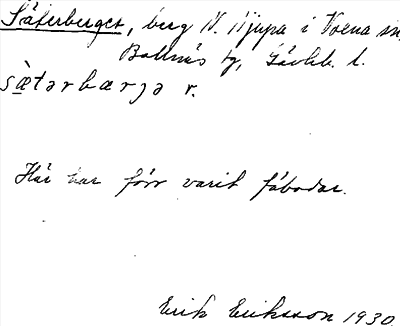 Säterberget, berg N. Njupa i Voxna sn.
Bollnäs tg, Gävleb. l.
sætərbærjə r.
Här har förr varit fäbodar.
Erik Eriksson 1930